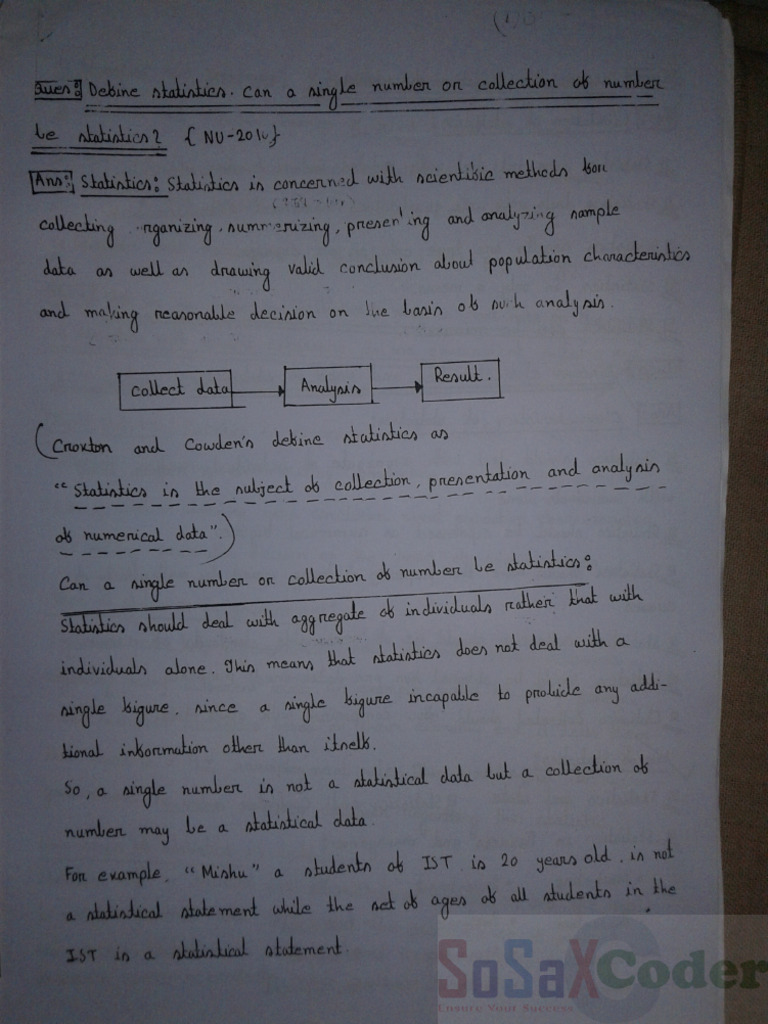 Ques: Define statistics. Can a single number or collection of number
be statistics? {NU-2010}
Ans: Statistics: Statistics is concerned with scientific methods for
collecting organizing, summerizing, presenting and analyzing sample
data as well as drawing valid conclusion about population characteristics
and making reasonable decision on the basis of such analysis.
Collect data Analysis Result.
(Croxton and Cowden's define statistics as
"Statistics is the subject of collection, presentation and analysis
of numerical data".)
Can a single number or collection of number be statistics:
Statistics should deal with aggregate of individuals rather that with
individuals alone. This means that statistics does not deal with a
single figure, since a single figure incapable to provide any addi-
tional information other than itself.
So, a single number is not a statistical data but a collection of
number may be a statistical data.
For example, "Mishu" a students of IST is 20 years old, is not
a statistical statement while the set of ages of all students in the
IST is a statistical statement.
SoSaXCoder
Ensure Your Success